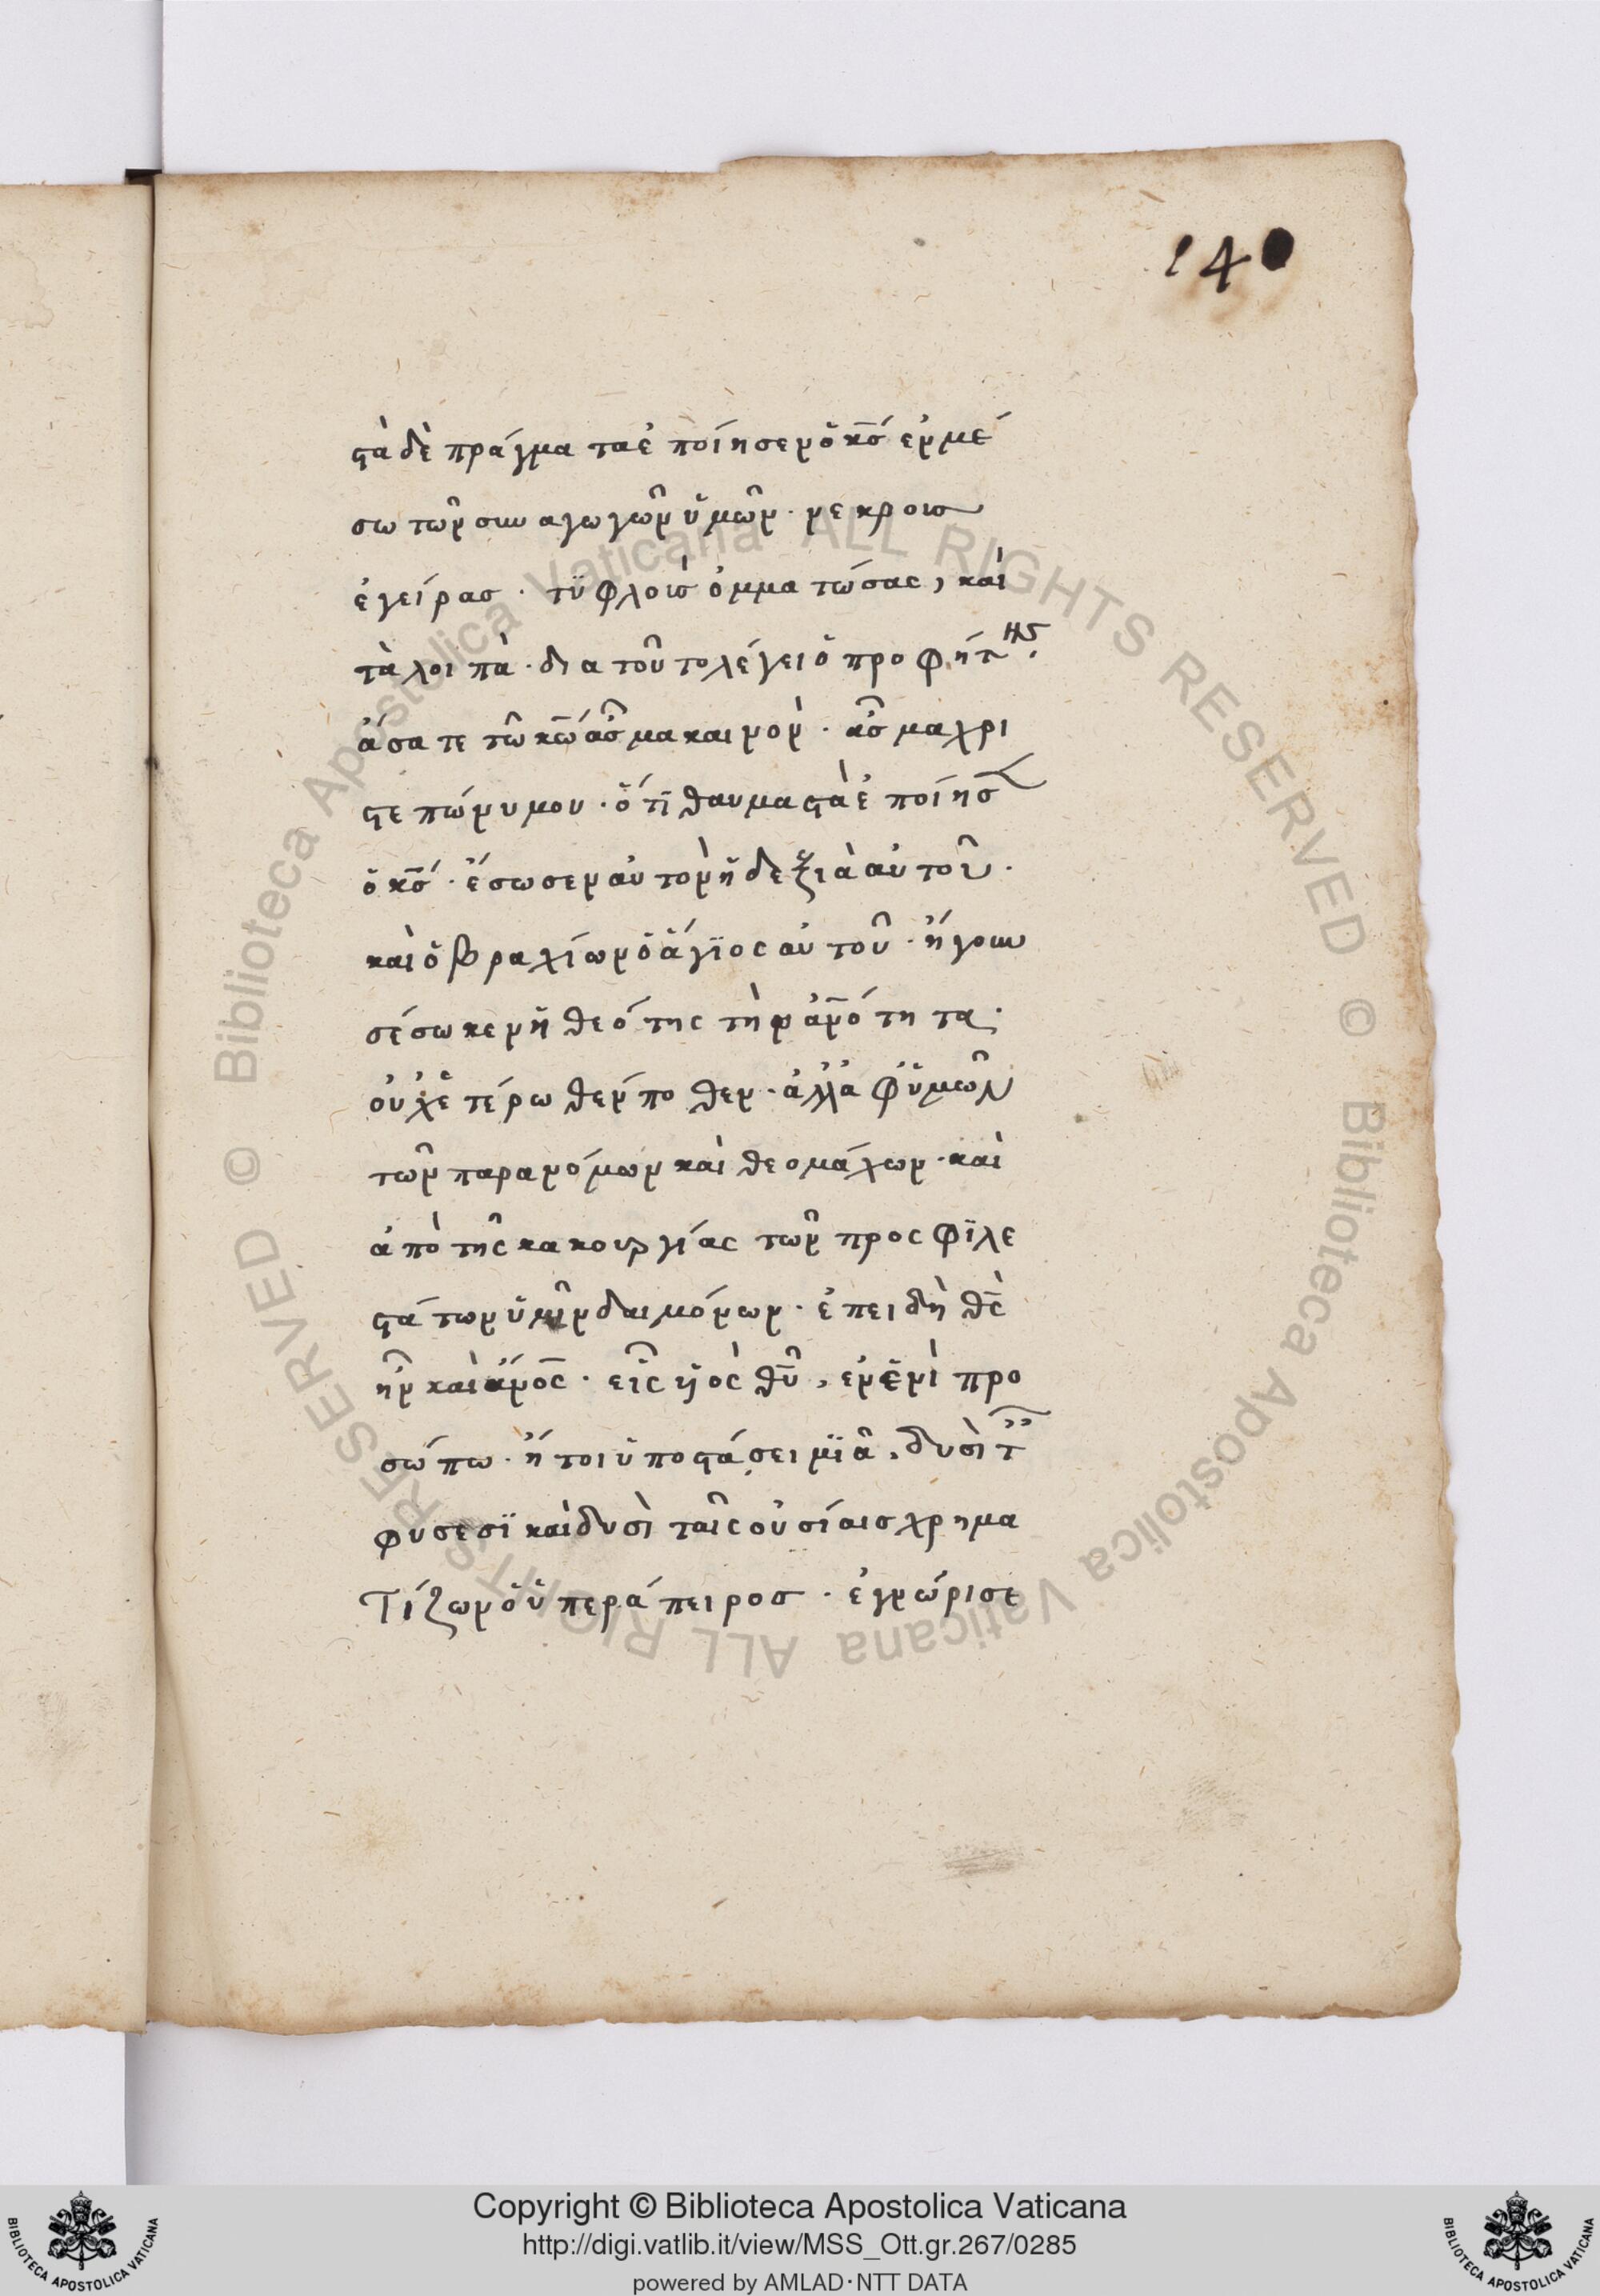 140
στὰ δὲ πράγματα ἐποίησεν ὁ κς ἐν μέ
σω τῶν συναγωγῶν ὑμῶν · νεκροὺσ
ἐγείρασ · τϋφλοὺσ ὀμματώσας, καὶ
τὰ λοιπά · δια τοῦτο λέγει ὁ προφήτης ·
ἄσατε τῶ κω ἆσμα καινον · ἆσμα χρι
στεπώνυμον · ὅτϊ θαυμαστὰ ἐποίησ
ὁ κς · ἔσωσεν αὐτὸν ἡ δεξιὰ αὐτοῦ ·
καὶ ὁ βραχίων ὁ ἅγϊος αὐτοῦ · ἤγουν
σέσωκεν ἡ θεότης τὴν ανότητα ·
οὐχ ἑτέρωθέν ποθεν · ἀλλ' ἀφ' ὑμῶν
τῶν παρανόμων καὶ θεομάχων · καὶ
ἀπὸ τῆς κακουργίας τῶν προσφϊλε
στάτων ὑμῖν δαιμόνων · ἐπειδὴ θς
ἦν καὶ ανος · εἷς ὑὸς θυ, ἐν ἑνὶ προ
σώπω · ἤτοι ὑποστάσει μϊᾶ, δυσὶ τ
φυσεσϊ καὶ δυσὶ ταῖς οὐσίαισ χρημα
τίζων ὁ ὑπεράπειροσ · ἐγνώρισε
Copyright © Biblioteca Apostolica Vaticana
http://digi.vatlib.it/view/MSS_Ott.gr.267/0285
powered by AMLAD·NTT DATA
BIBLIOTECA APOSTOLICA VATICANA
BIBLIOTECA APOSTOLICA VATICANA
© Biblioteca Apostolica Vaticana ALL RIGHTS RESERVED © Biblioteca Apostolica Vaticana ALL RIGHTS RESERVED